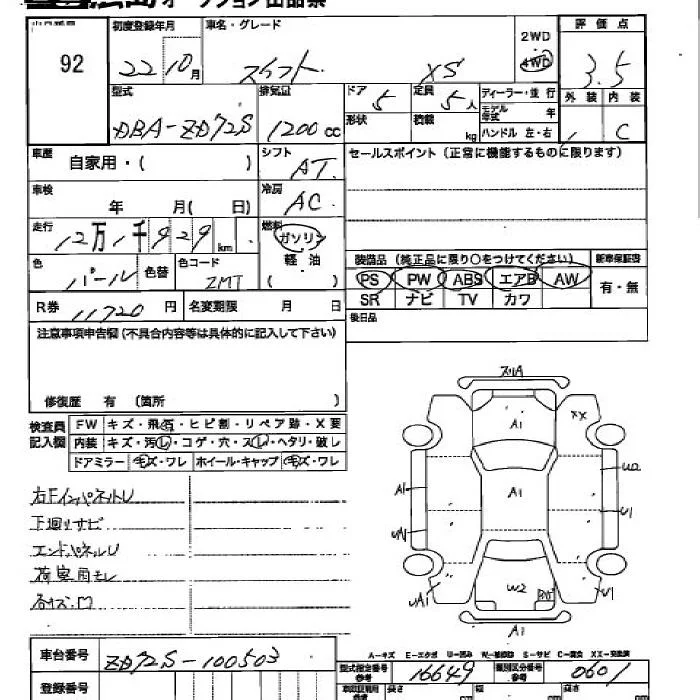 オークション出品票
92
初度登録年月 22 10月
車名・グレード スイフト XS
2WD 4WD
評価点 3.5
外装 内装 C
型式 DBA-ZD72S
排気量 1200cc
ドア 5
形状
定員 5人
積載 kg
ディーラー・並行
モデル年式 年
ハンドル 左・右
車歴 自家用・( )
シフト AT
セールスポイント(正常に機能するものに限ります)
車検 年 月( 日)
冷房 AC
走行 12万1千929km
燃料 ガソリン 軽・油 ( )
装備品(純正品に限り○をつけてください)
新車保証書 有・無
PS PW ABS エアB AW
SR ナビ TV カワ
色 パール 色替
色コード ZMT
R券 11720円
名変期限 月 日
後日品
注意事項申告欄(不具合内容等は具体的に記入して下さい)
修復歴 有 (箇所 )
検査員記入欄
FW キズ・飛石・ヒビ割・リペア跡・X要
内装 キズ・汚レ・コゲ・穴・スレ・ヘタリ・破レ
ドアミラー キズ・ワレ ホイール・キャップ キズ・ワレ
右FインパネルU
下廻りサビ
エンドパネルU
スリA
A1
XX
A1
A1
U2
U1
W2
A1
A-キズ E-エクボ U-凹み W-補修跡 S-サビ C-腐食 XX-交換済
車台番号 ZD72S-100503
登録番号
型式指定番号 参考 16649
類別区分番号 参考 0601
長さ cm 幅 cm 高さ cm